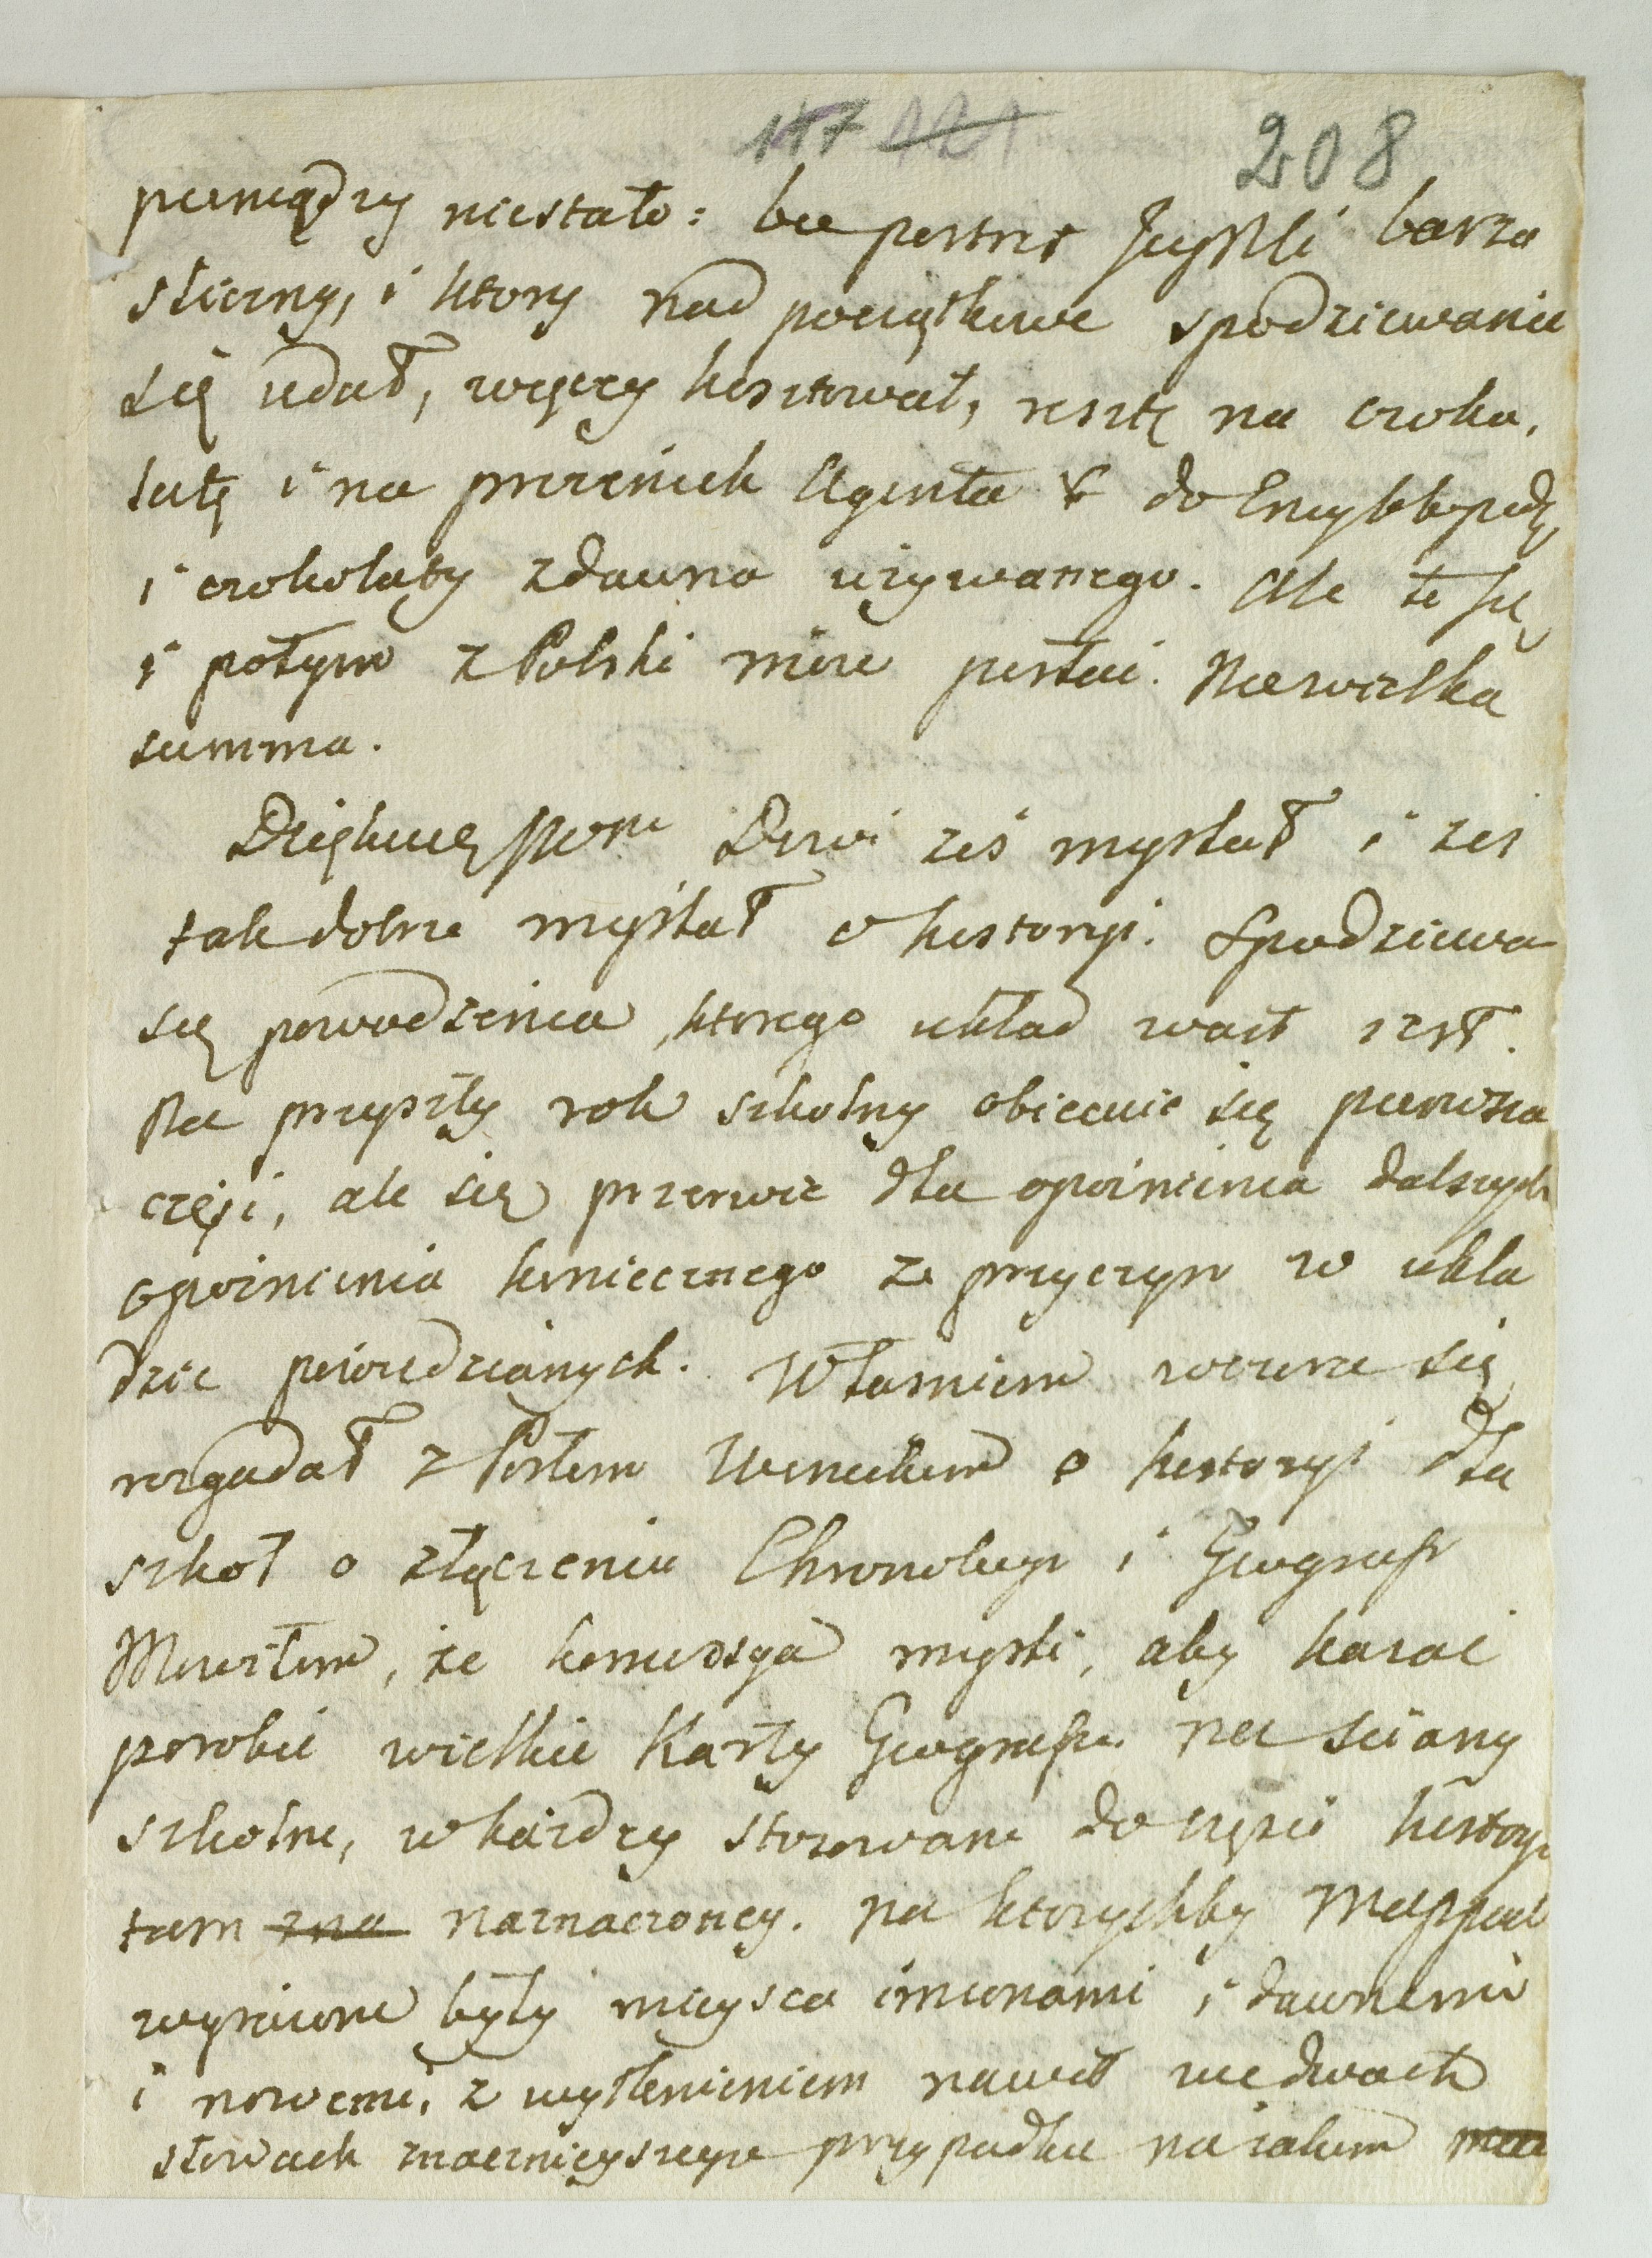 117 121 208
pieniędzy niestało: bo portret barzo
sliczny, i ktory nad początkowe spodziewanie
się udał, więcey kosztował, resztę na czoko,
latę i na przecinek Agenta do Encyklopedy
i czokolaty zdawna używanego. Ale to się
i potym z Polski może posłać. Niewielka
summa.
Dziękuię żeś myslał i żeś
tak dobrze myslał o historyi. Spodziewa
się powodzenia, ktorego układ wart iest.
Na przyszły rok szkolny obiecuie się pierwsza
część, ale się przerwie dla opoźnienia dalszych
opoźnienia koniecznego z przyczyn w ukła
dzie powiedzianych. Własniem wczora się
rozgadał z Posłem Weneckim o historyi dla
szkoł o złączeniu Chronologii i Geografii
Mowiłem, że kommissya mysli, aby kazać
porobić wielkie Karty Geografi. na sciany
szkolne, w każdzey stosowane do części historyi
tam zna naznaczoney. na ktorychby Mappach
wyrażone były mieysca imionami i dawnemi
i nowemi, z wytknieniem nawet we dwoch
słowach znacznieyszego przypadku na iakim